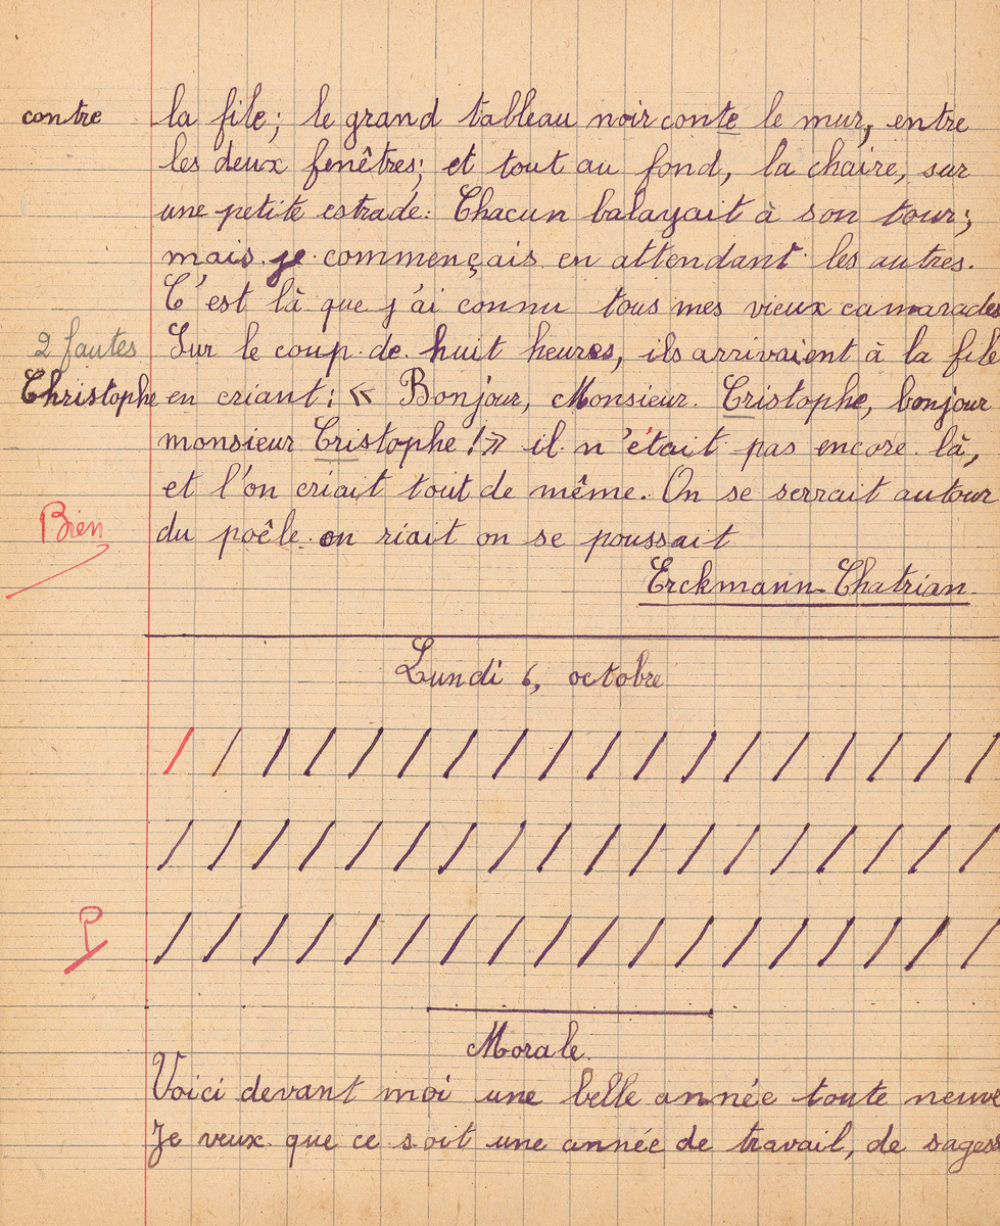 contre la file; le grand tableau noir conte le mur, entre
les deux fenêtres; et tout au fond, la chaire, sur
une petite estrade. Chacun balayait à son tour;
mais je commençais en attendant les autres.
C'est là que j'ai connu tous mes vieux camarades
2 fautes Sur le coup de huit heures, ils arrivaient à la file
Christophe en criant: « Bonjour, Monsieur Cristophe, bonjour
monsieur Cristophe !» il n'était pas encore là,
et l'on criait tout de même. On se serrait autour
Bien du poêle on riait on se poussait
Erckmann-Chatrian
Lundi 6, octobre
P
Morale.
Voici devant moi une belle année toute neuve
Je veux que ce soit une année de travail, de sagess